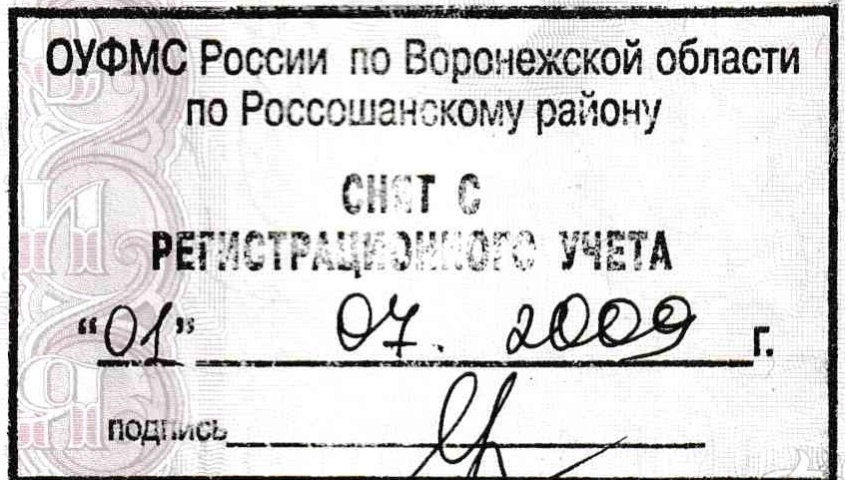 ОУФМС России по Воронежской области
по Россошанскому району
СНЯТ С
РЕГИСТРАЦИОННОГО УЧЕТА
“01” 07. 2009 г.
подпись